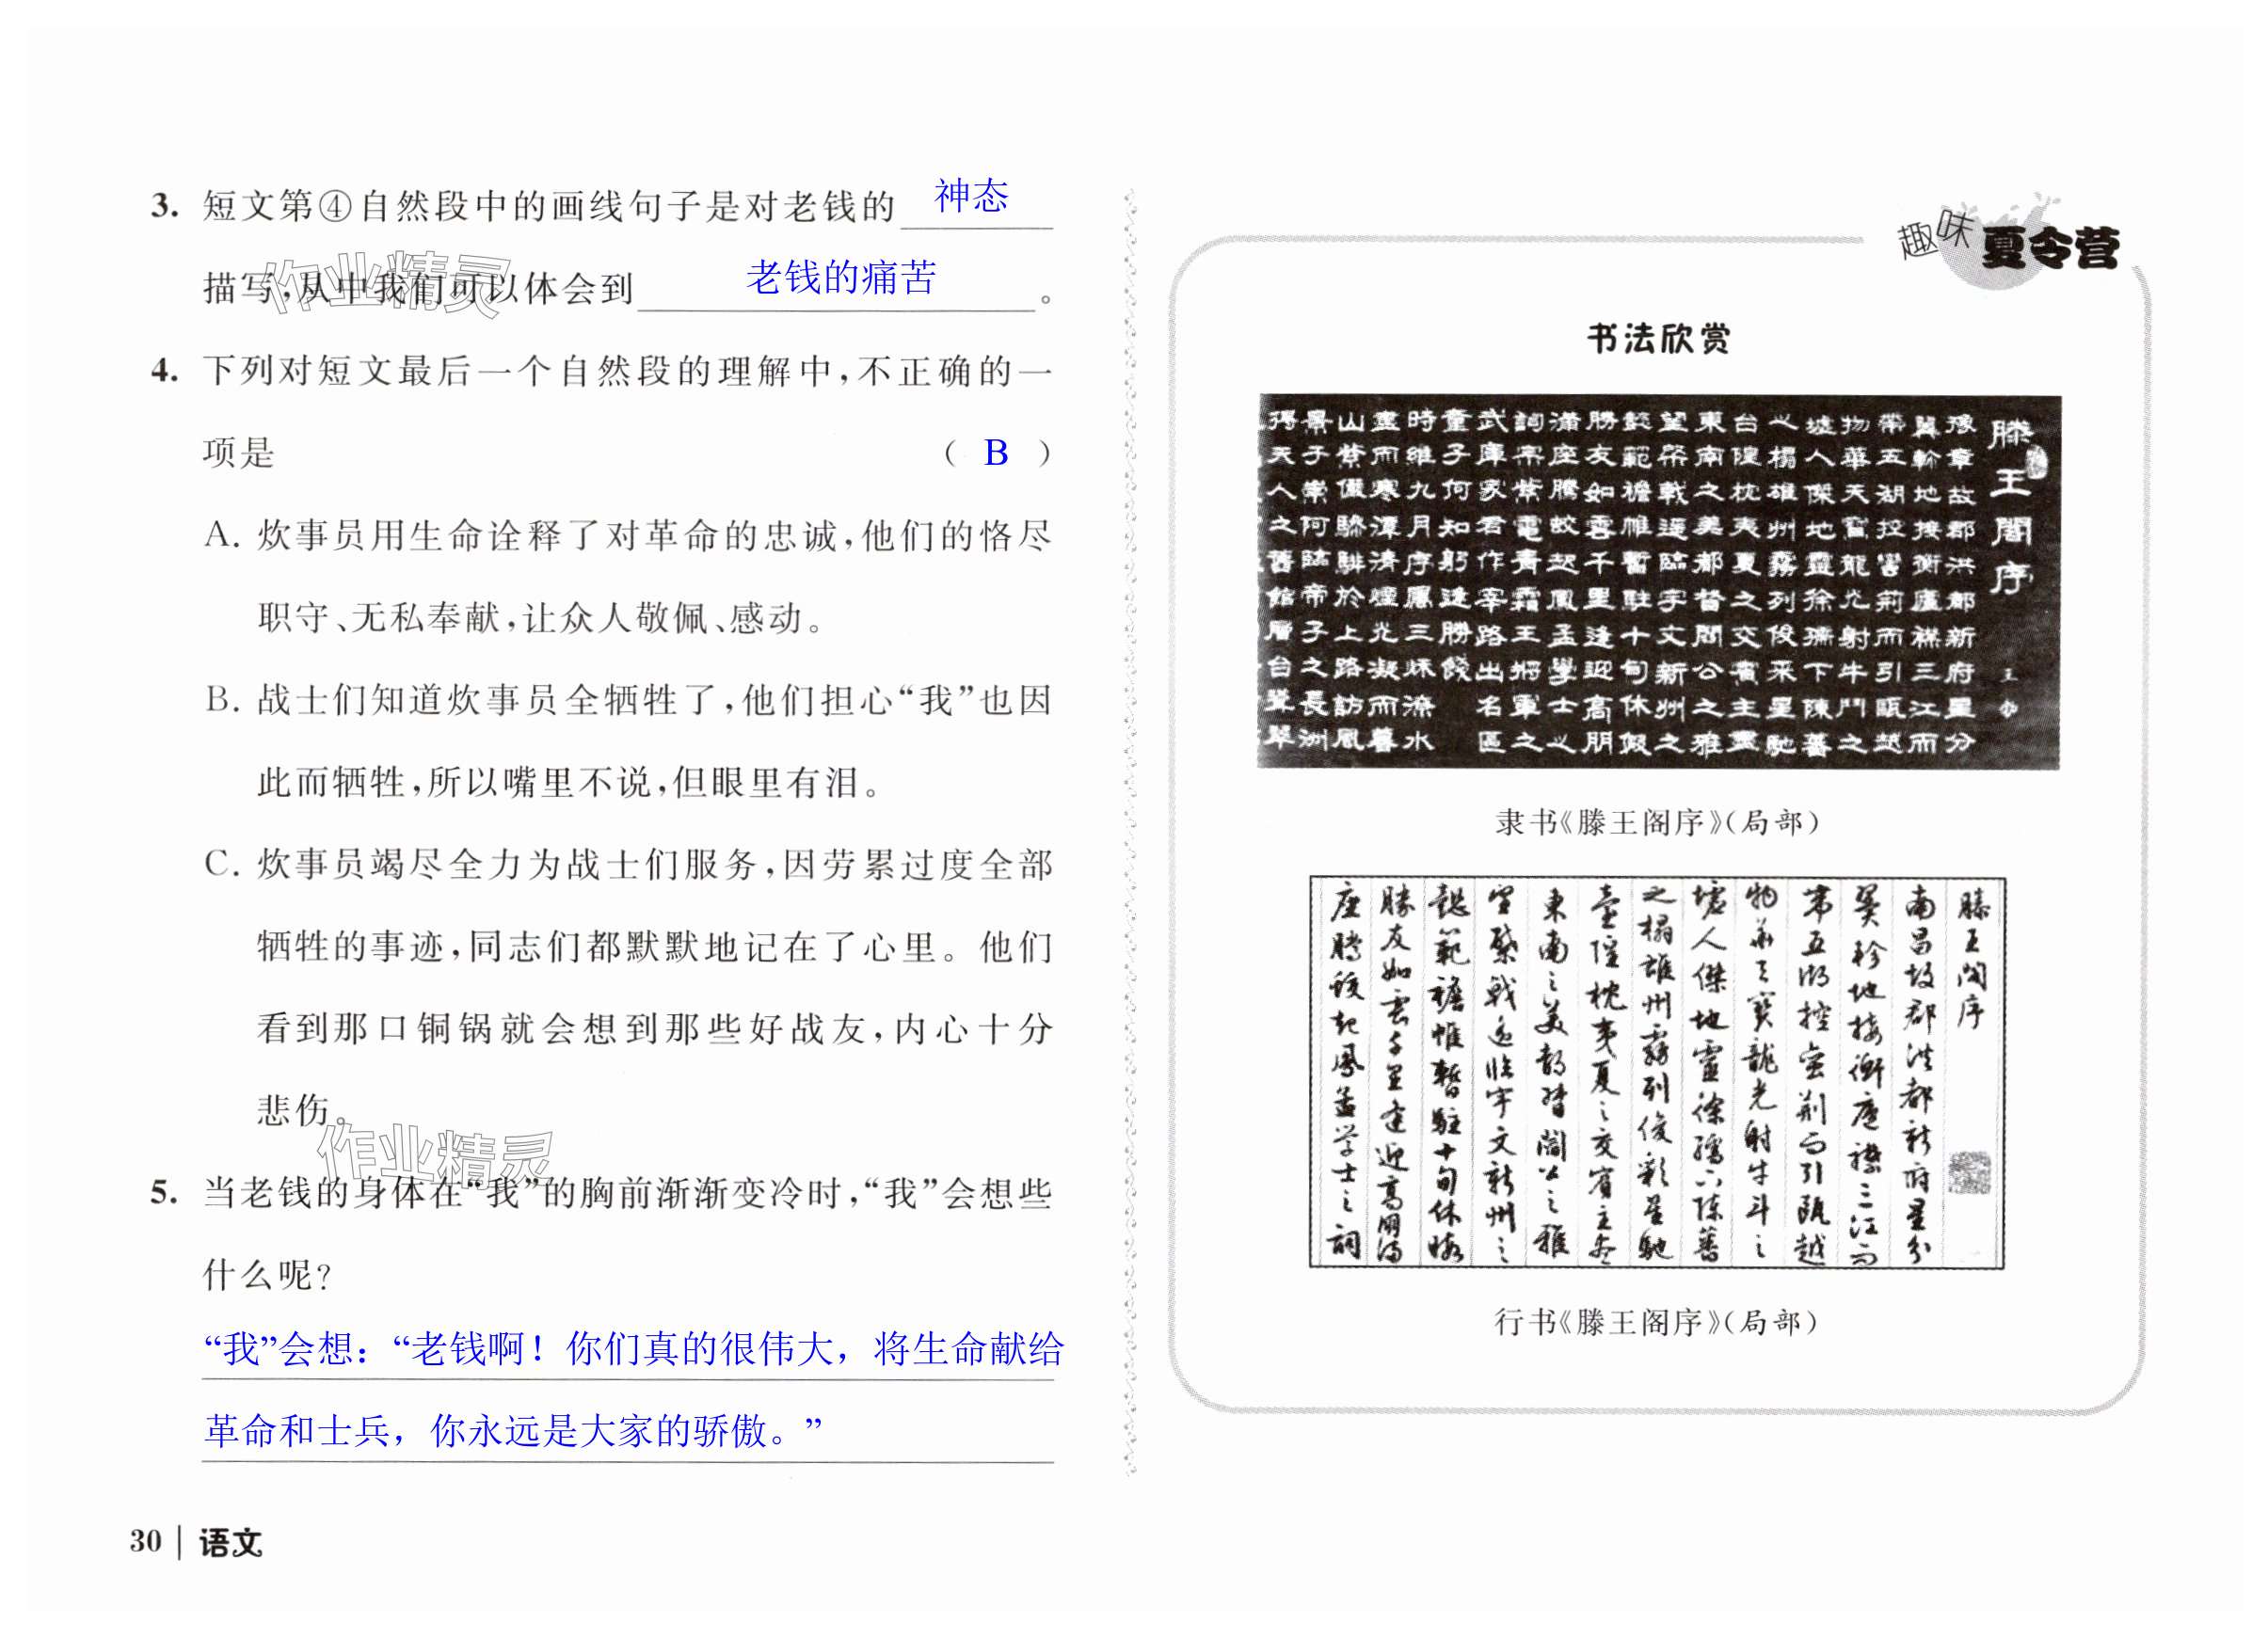 3. 短文第④自然段中的画线句子是对老钱的 神态
描写,从中我们可以体会到 老钱的痛苦 。
作业精灵
4. 下列对短文最后一个自然段的理解中,不正确的一
项是 ( B )
A. 炊事员用生命诠释了对革命的忠诚,他们的恪尽
职守、无私奉献,让众人敬佩、感动。
B. 战士们知道炊事员全牺牲了,他们担心“我”也因
此而牺牲,所以嘴里不说,但眼里有泪。
C. 炊事员竭尽全力为战士们服务,因劳累过度全部
牺牲的事迹,同志们都默默地记在了心里。他们
看到那口铜锅就会想到那些好战友,内心十分
悲伤。
作业精灵
5. 当老钱的身体在“我”的胸前渐渐变冷时,“我”会想些
什么呢?
“我”会想：“老钱啊！你们真的很伟大，将生命献给
革命和士兵，你永远是大家的骄傲。”
30 | 语文
趣味夏令营
书法欣赏
滕王閣序 王勃
豫章故郡洪都新府星分
翼軫地接衡廬襟三江而
帶五湖控蠻荊而引甌越
物華天寶龍光射牛鬥之
墟人傑地靈徐孺下陳蕃
之榻雄州霧列俊采星馳
台隍枕夷夏之交賓主盡
東南之美都督閻公之雅
望棨戟遥臨宇文新州之
懿範襜帷暫駐十旬休假
勝友如雲千里逢迎高朋
滿座騰蛟起鳳孟學士之
詞宗紫電青霜王將軍之
武庫家君作宰路出名區
童子何知躬逢勝餞
時維九月序屬三秋潦水
盡而寒潭清煙光凝而暮
山紫儼驂騑於上路訪風
景于崇阿臨帝子之長洲
得天人之舊館層台聳翠
隶书《滕王阁序》(局部)
滕王閣序
南昌故郡洪都新府星分
翼軫地接衡廬襟三江而
帶五湖控蛮荊而引甌越
物華天寶龍光射牛斗之
墟人傑地靈徐孺下陳蕃
之榻雄州霧列俊彩星馳
臺隍枕夷夏之交賓主盡
東南之美都督閻公之雅
望棨戟遥臨宇文新州之
懿範襜帷暫駐十旬休暇
勝友如雲千里逢迎高朋滿
座騰蛟起鳳孟学士之詞
行书《滕王阁序》(局部)